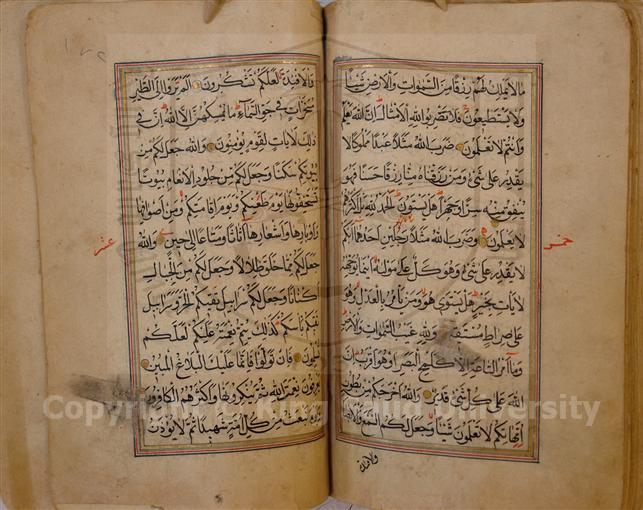 مالا يملك لهم رزقا من السموات والارض شيئا
ولا يستطيعون فلا تضربوا لله الامثال ان الله يعلم
وانتم لا تعلمون ضرب الله مثلا عبدا مملوكا لا
يقدر على شئ ومن رزقناه منا رزقا حسنا فهو
ينفق منه سرا وجهرا هل يستون الحمد لله بل اكثرهم
لا يعلمون وضرب الله مثلا رجلين احدهما ابكم
لا يقدر على شئ وهو كل على موليه اينما يوجهه
لا يات بخير هل يستوى هو ومن يأمر بالعدل وهو
على صراط مستقيم ولله غيب السموات والارض
وما امر الساعة الا كلمح البصر او هو اقرب ان
الله على كل شئ قدير والله اخرجكم من بطون
امهاتكم لا تعلمون شيئا وجعل لكم السمع
خمس
والافئدة لعلكم تشكرون الم يروا الى الطير
مسخرات في جو السماء ما يمسكهن الا الله ان في
ذلك لايات لقوم يؤمنون والله جعل لكم من
بيوتكم سكنا وجعل لكم من جلود الانعام بيوتا
تستخفونها يوم ظعنكم ويوم اقامتكم ومن اصوافها
واوبارها واشعارها اثاثا ومتاعا الى حين والله
جعل لكم مما خلق ظلالا وجعل لكم من الجبال
اكنانا وجعل لكم سرابيل تقيكم الحر وسرابيل
تقيكم باسكم كذلك يتم نعمته عليكم لعلكم
تسلمون فان تولوا فانما عليك البلاغ المبين
يعرفون نعمة الله ثم ينكرونها واكثرهم الكافرون
ويوم نبعث من كل امة شهيدا ثم لا يؤذن
عشر
Copyright (c) King Saud University